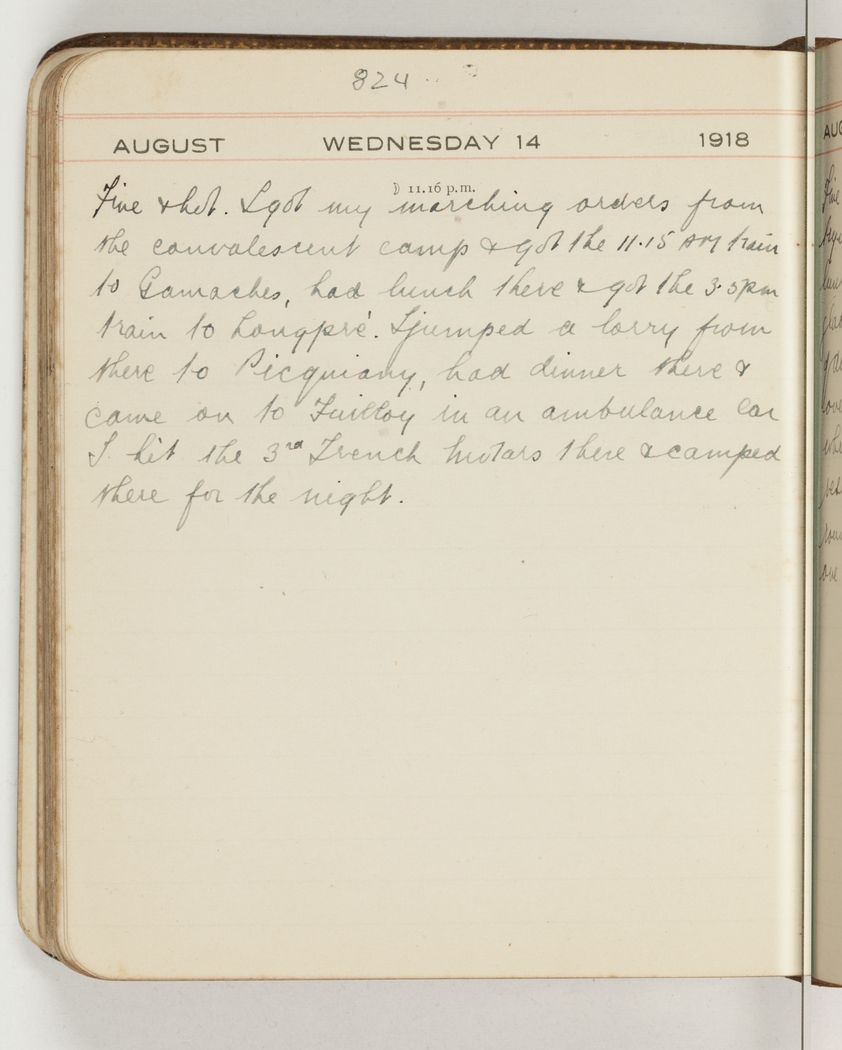 824
AUGUST WEDNESDAY 14 1918
☽ 11.16 p.m.
Fine & hot. I got my marching orders from
the convalescent camp & got the 11.15 AM train
to Gamaches, had lunch there & got the 3.5pm
train to Longpré. I jumped a lorry from
there to Picquiany, had dinner there &
came on to in an ambulance car
I hit the 3rd Trench Motars there & camped
there for the night.